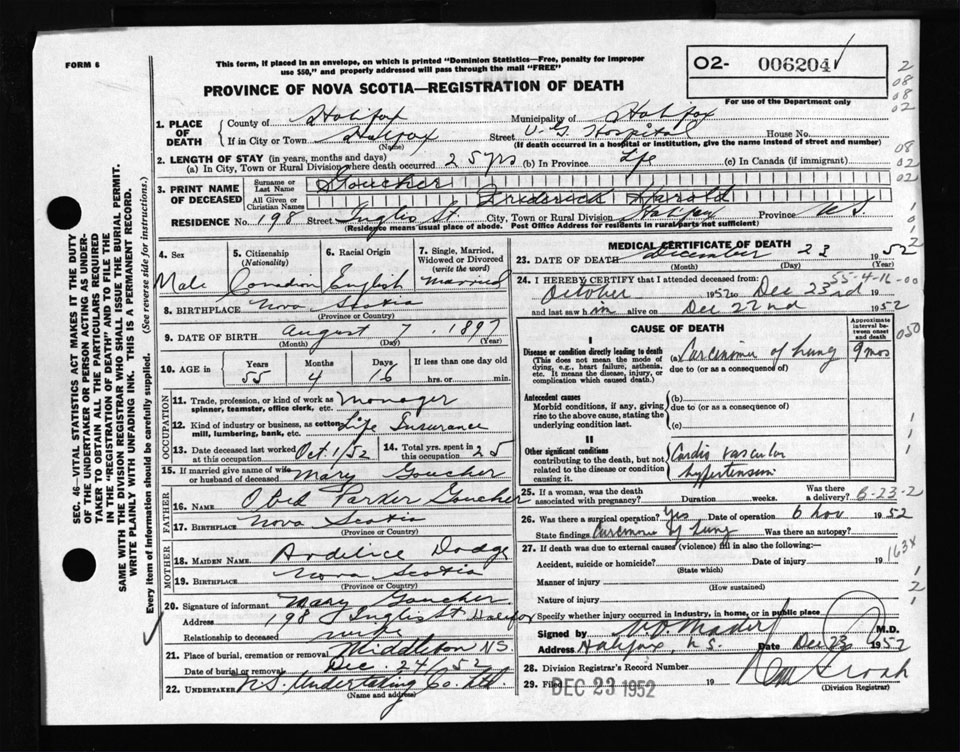 FORM 6
This form, if placed in an envelope, on which is printed "Dominion Statistics—Free, penalty for improper
use $50," and properly addressed will pass through the mail "FREE"
O2- 006204
For use of the Department only
PROVINCE OF NOVA SCOTIA—REGISTRATION OF DEATH
1. PLACE OF DEATH
County of Halifax Municipality of Halifax
If in City or Town Halifax Street V. G. Hospital House No.
(Name) (If death occurred in a hospital or institution, give the name instead of street and number)
2. LENGTH OF STAY (in years, months and days)
(a) In City, Town or Rural Division where death occurred 25 yrs (b) In Province Life (c) In Canada (if immigrant)
3. PRINT NAME OF DECEASED
Surname or Last Name Goucher
All Given or Christian Names Frederick Harold
RESIDENCE No. 198 Street Inglis St. City, Town or Rural Division Halifax Province N.S.
(Residence means usual place of abode. Post Office Address for residents in rural parts not sufficient)
4. Sex Male
5. Citizenship (Nationality) Canadian
6. Racial Origin English
7. Single, Married, Widowed or Divorced (write the word) Married
8. BIRTHPLACE Nova Scotia
(Province or Country)
9. DATE OF BIRTH August 7, 1897
(Month) (Day) (Year)
10. AGE in Years 55 Months 4 Days 16 If less than one day old hrs. or min.
OCCUPATION
11. Trade, profession, or kind of work as spinner, teamster, office clerk, etc. Manager
12. Kind of industry or business, as cotton mill, lumbering, bank, etc. Life Insurance
13. Date deceased last worked at this occupation Oct 1/52
14. Total yrs. spent in this occupation 25
15. If married give name of wife or husband of deceased Mary Goucher
FATHER
16. NAME Obed Parker Goucher
17. BIRTHPLACE Nova Scotia
(Province or Country)
MOTHER
18. MAIDEN NAME Ardelice Dodge
19. BIRTHPLACE Nova Scotia
(Province or Country)
20. Signature of informant Mary Goucher
Address 198 Inglis St Halifax
Relationship to deceased wife
21. Place of burial, cremation or removal Middleton N.S.
Date of burial or removal Dec. 24/52
22. UNDERTAKER N.S. Undertaking Co. Ltd.
(Name and address)
MEDICAL CERTIFICATE OF DEATH
23. DATE OF DEATH December 23 1952
(Month) (Day) (Year)
55-4-16-00
24. I HEREBY CERTIFY that I attended deceased from:
October 1952 to Dec 23rd 19
and last saw him alive on Dec 22nd 1952
CAUSE OF DEATH
Approximate interval between onset and death
I
Disease or condition directly leading to death
(This does not mean the mode of dying, e.g., heart failure, asthenia, etc. It means the disease, injury, or complication which caused death.)
(a) Carcinoma of Lung 9 mos
due to (or as a consequence of)
Antecedent causes
Morbid conditions, if any, giving rise to the above cause, stating the underlying condition last.
(b)
due to (or as a consequence of)
(c)
II
Other significant conditions
contributing to the death, but not related to the disease or condition causing it.
Cardio vascular
hypertension
25. If a woman, was the death associated with pregnancy? Duration weeks. Was there a delivery? B-23-2
26. Was there a surgical operation? Yes Date of operation 6 Nov 1952
State findings Carcinoma of Lung Was there an autopsy?
27. If death was due to external causes (violence) fill in also the following:—
Accident, suicide or homicide? Date of injury 19
(State which)
Manner of injury
(How sustained)
Nature of injury
Specify whether injury occurred in industry, in home, or in public place
Signed by M.D.
Address Halifax, N.S. Date Dec 23 1952
28. Division Registrar's Record Number
29. Filed DEC 23 1952 19
(Division Registrar)
SEC. 46—VITAL STATISTICS ACT MAKES IT THE DUTY
OF THE UNDERTAKER OR PERSON ACTING AS UNDER-
TAKER TO OBTAIN ALL THE PARTICULARS REQUIRED
IN THE "REGISTRATION OF DEATH" AND TO FILE THE
SAME WITH THE DIVISION REGISTRAR WHO SHALL ISSUE THE BURIAL PERMIT.
WRITE PLAINLY WITH UNFADING INK. THIS IS A PERMANENT RECORD.
Every item of information should be carefully supplied. (See reverse side for instructions.)